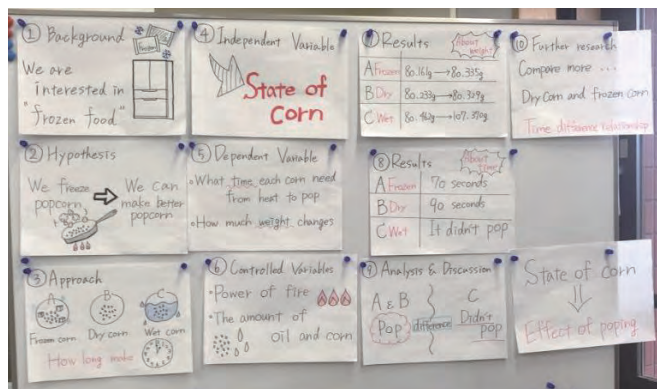 ① Background
Frozen
We are
interested in
"frozen food"
② Hypothesis
We freeze
popcorn
We can
make better
popcorn
③ Approach
A
B
C
Frozen corn
Dry corn
Wet corn
How long make
④ Independent Variable
State of
Corn
⑤ Dependent Variable
• What time each corn need
from heat to pop
• How much weight changes
⑥ Controlled Variables
• Power of fire
• The amount of
oil and corn
⑦ Results
About weight
A Frozen 80.161g → 80.335g
B Dry 80.233g → 80.329g
C Wet 80.162g → 107.370g
⑧ Results
About time
A Frozen 70 seconds
B Dry 90 seconds
C Wet It didn't pop
⑨ Analysis & Discussion
A & B
Pop
difference
C
Didn't
pop
⑩ Further research
Compare more ...
Dry corn and frozen corn
Time difference relationship
State of corn
⇓
Effect of poping